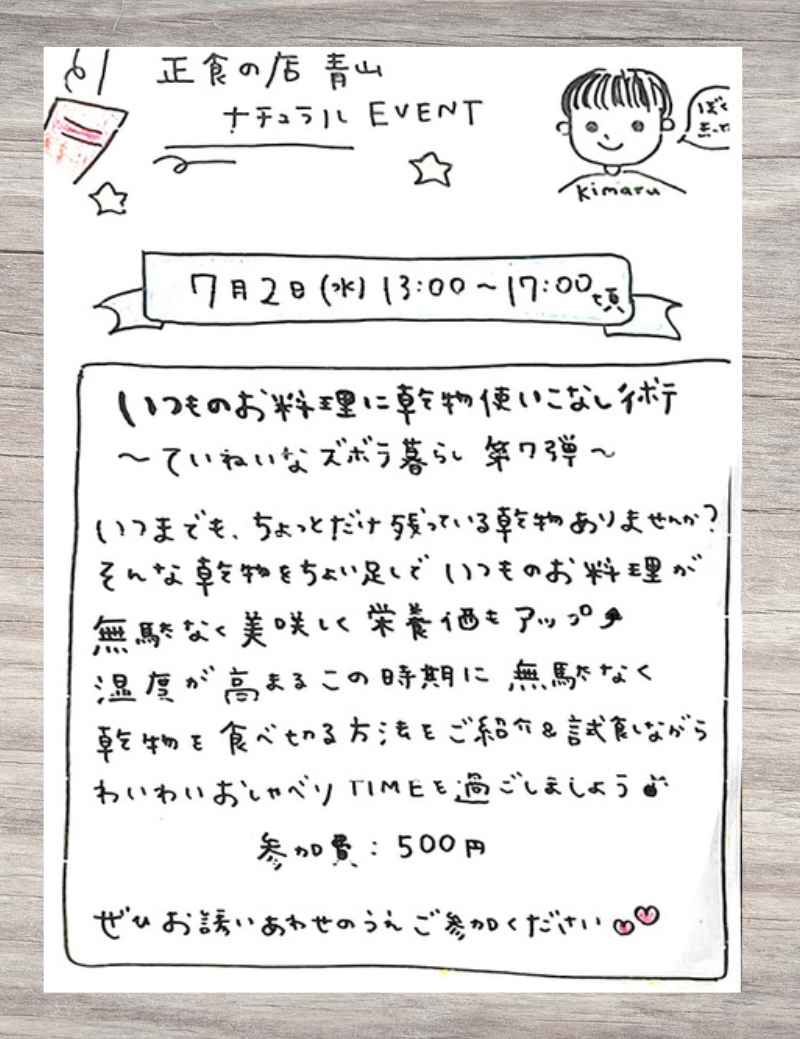 正食の店 青山
ナチュラル EVENT
ぼく
kimaru
7月2日(水) 13:00～17:00頃
いつものお料理に乾物使いこなし術
～ていねいな ズボラ暮らし 第7弾～
いつまでも、ちょっとだけ残っている乾物ありませんか?
そんな乾物をちょい足しで いつものお料理が
無駄なく美味しく 栄養価もアップ
湿度が高まるこの時期に 無駄なく
乾物を食べ切る方法をご紹介&試食しながら
わいわいおしゃべりTIMEを過ごしましょう♪
参加費:500円
ぜひお誘いあわせのうえご参加ください